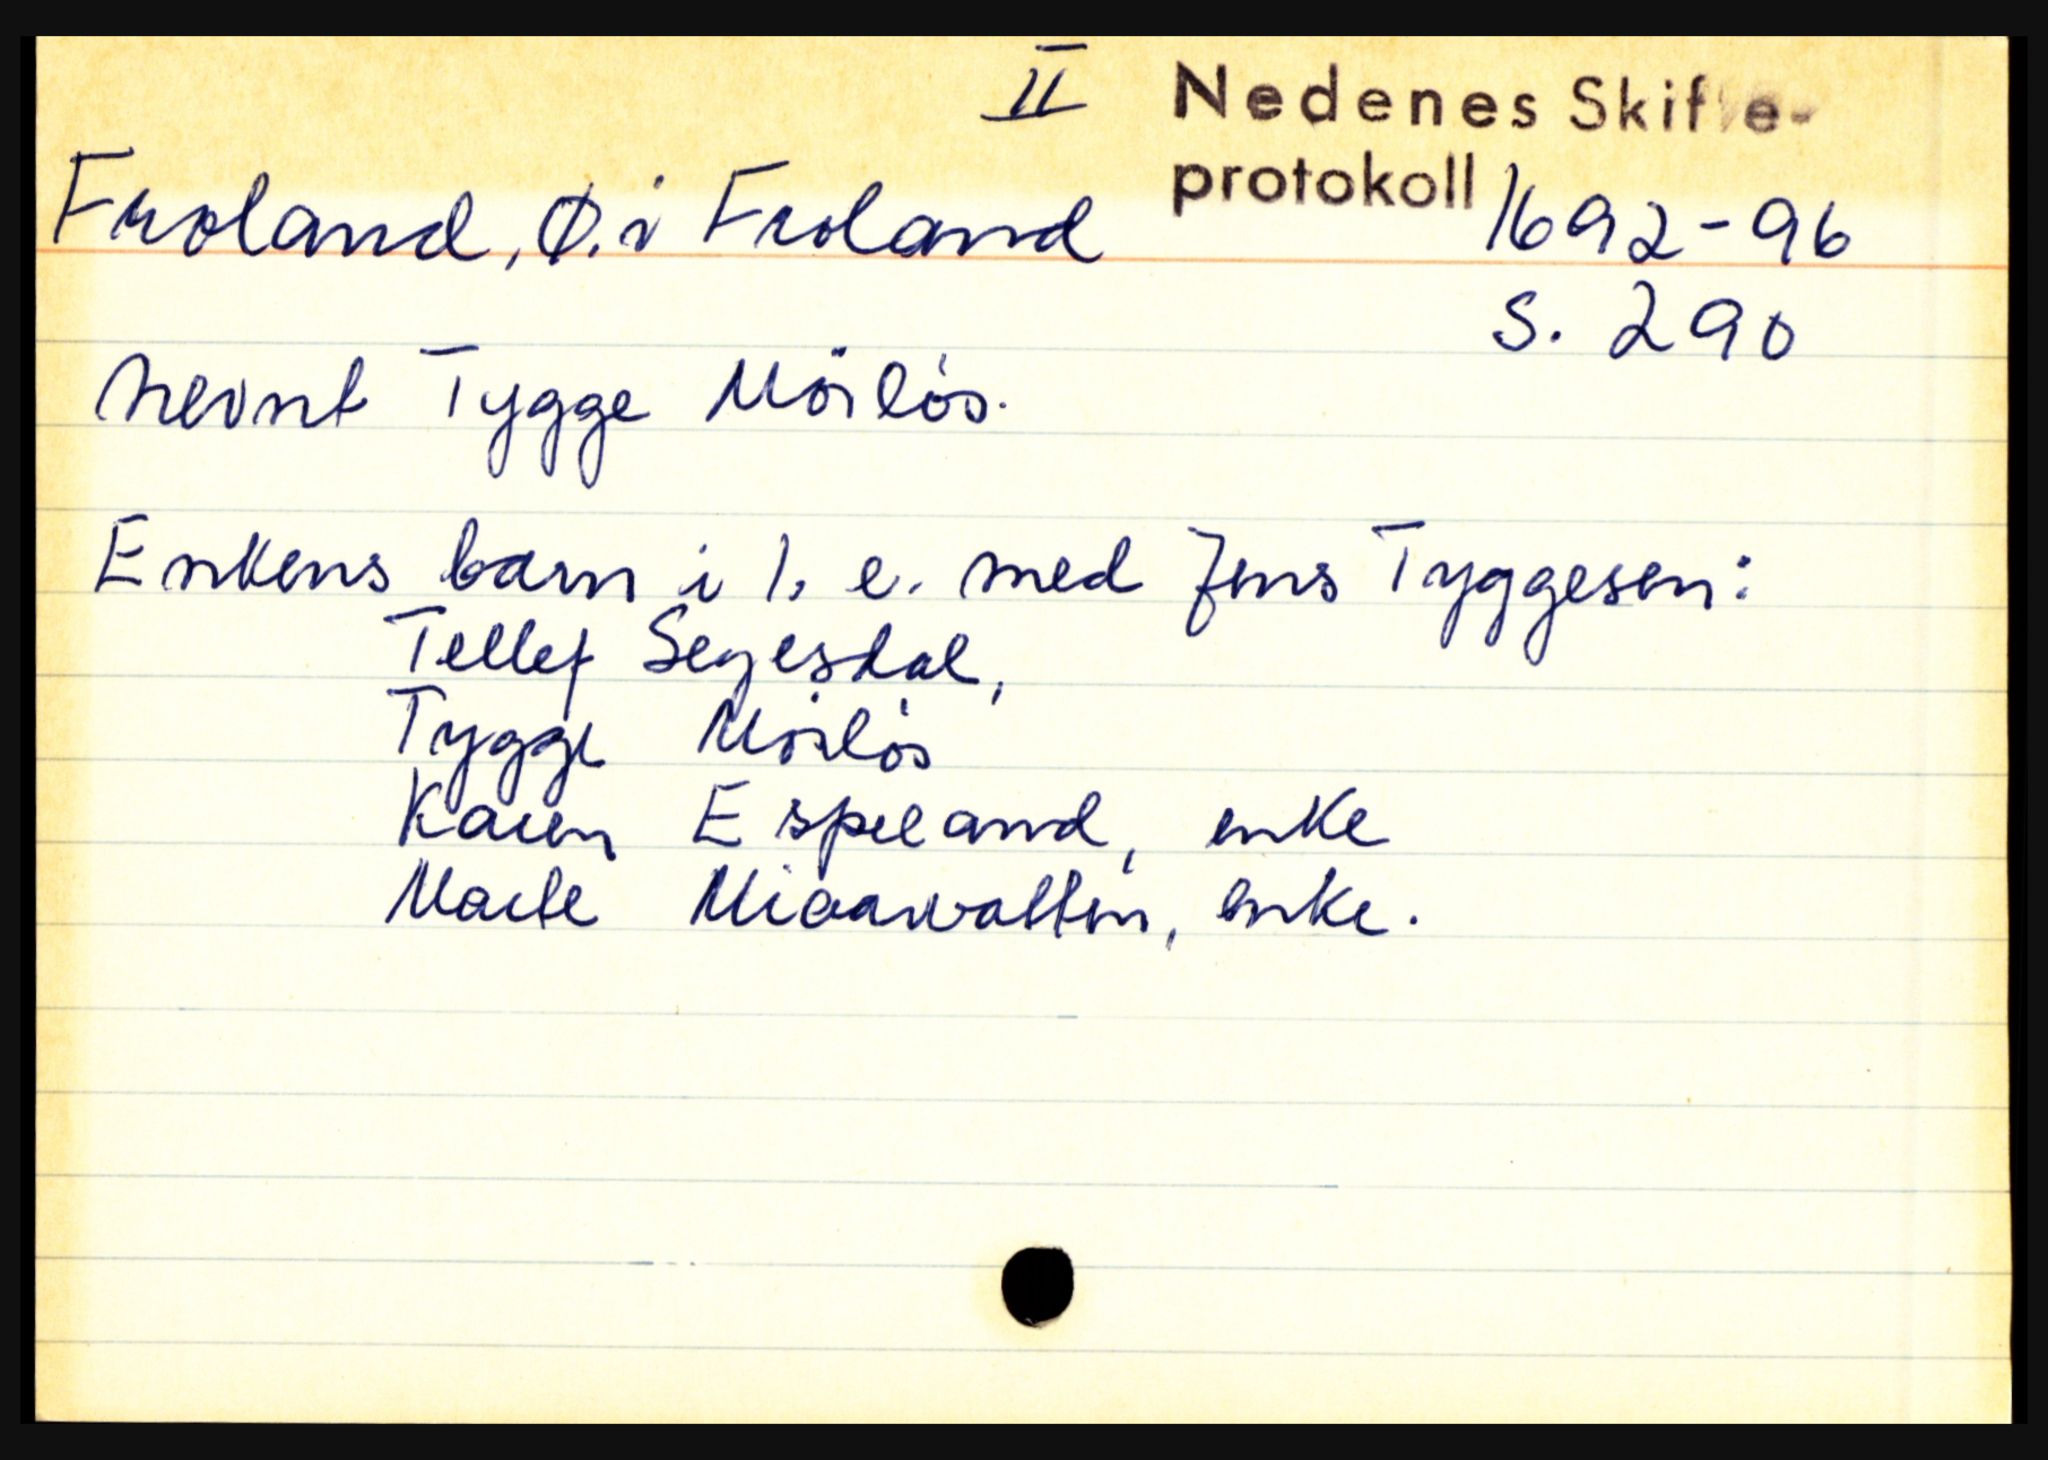 II Nedenes Skifte-
protokoll
Froland, Ø. i Froland 1692-96
S. 290
nevnt Tygge Mörlös.
Enkens barn i 1. e. med Jens Tyggesen:
Tellef Seyesdal,
Tygge Mörlös
Karen Espeland, enke
Marte, enke.